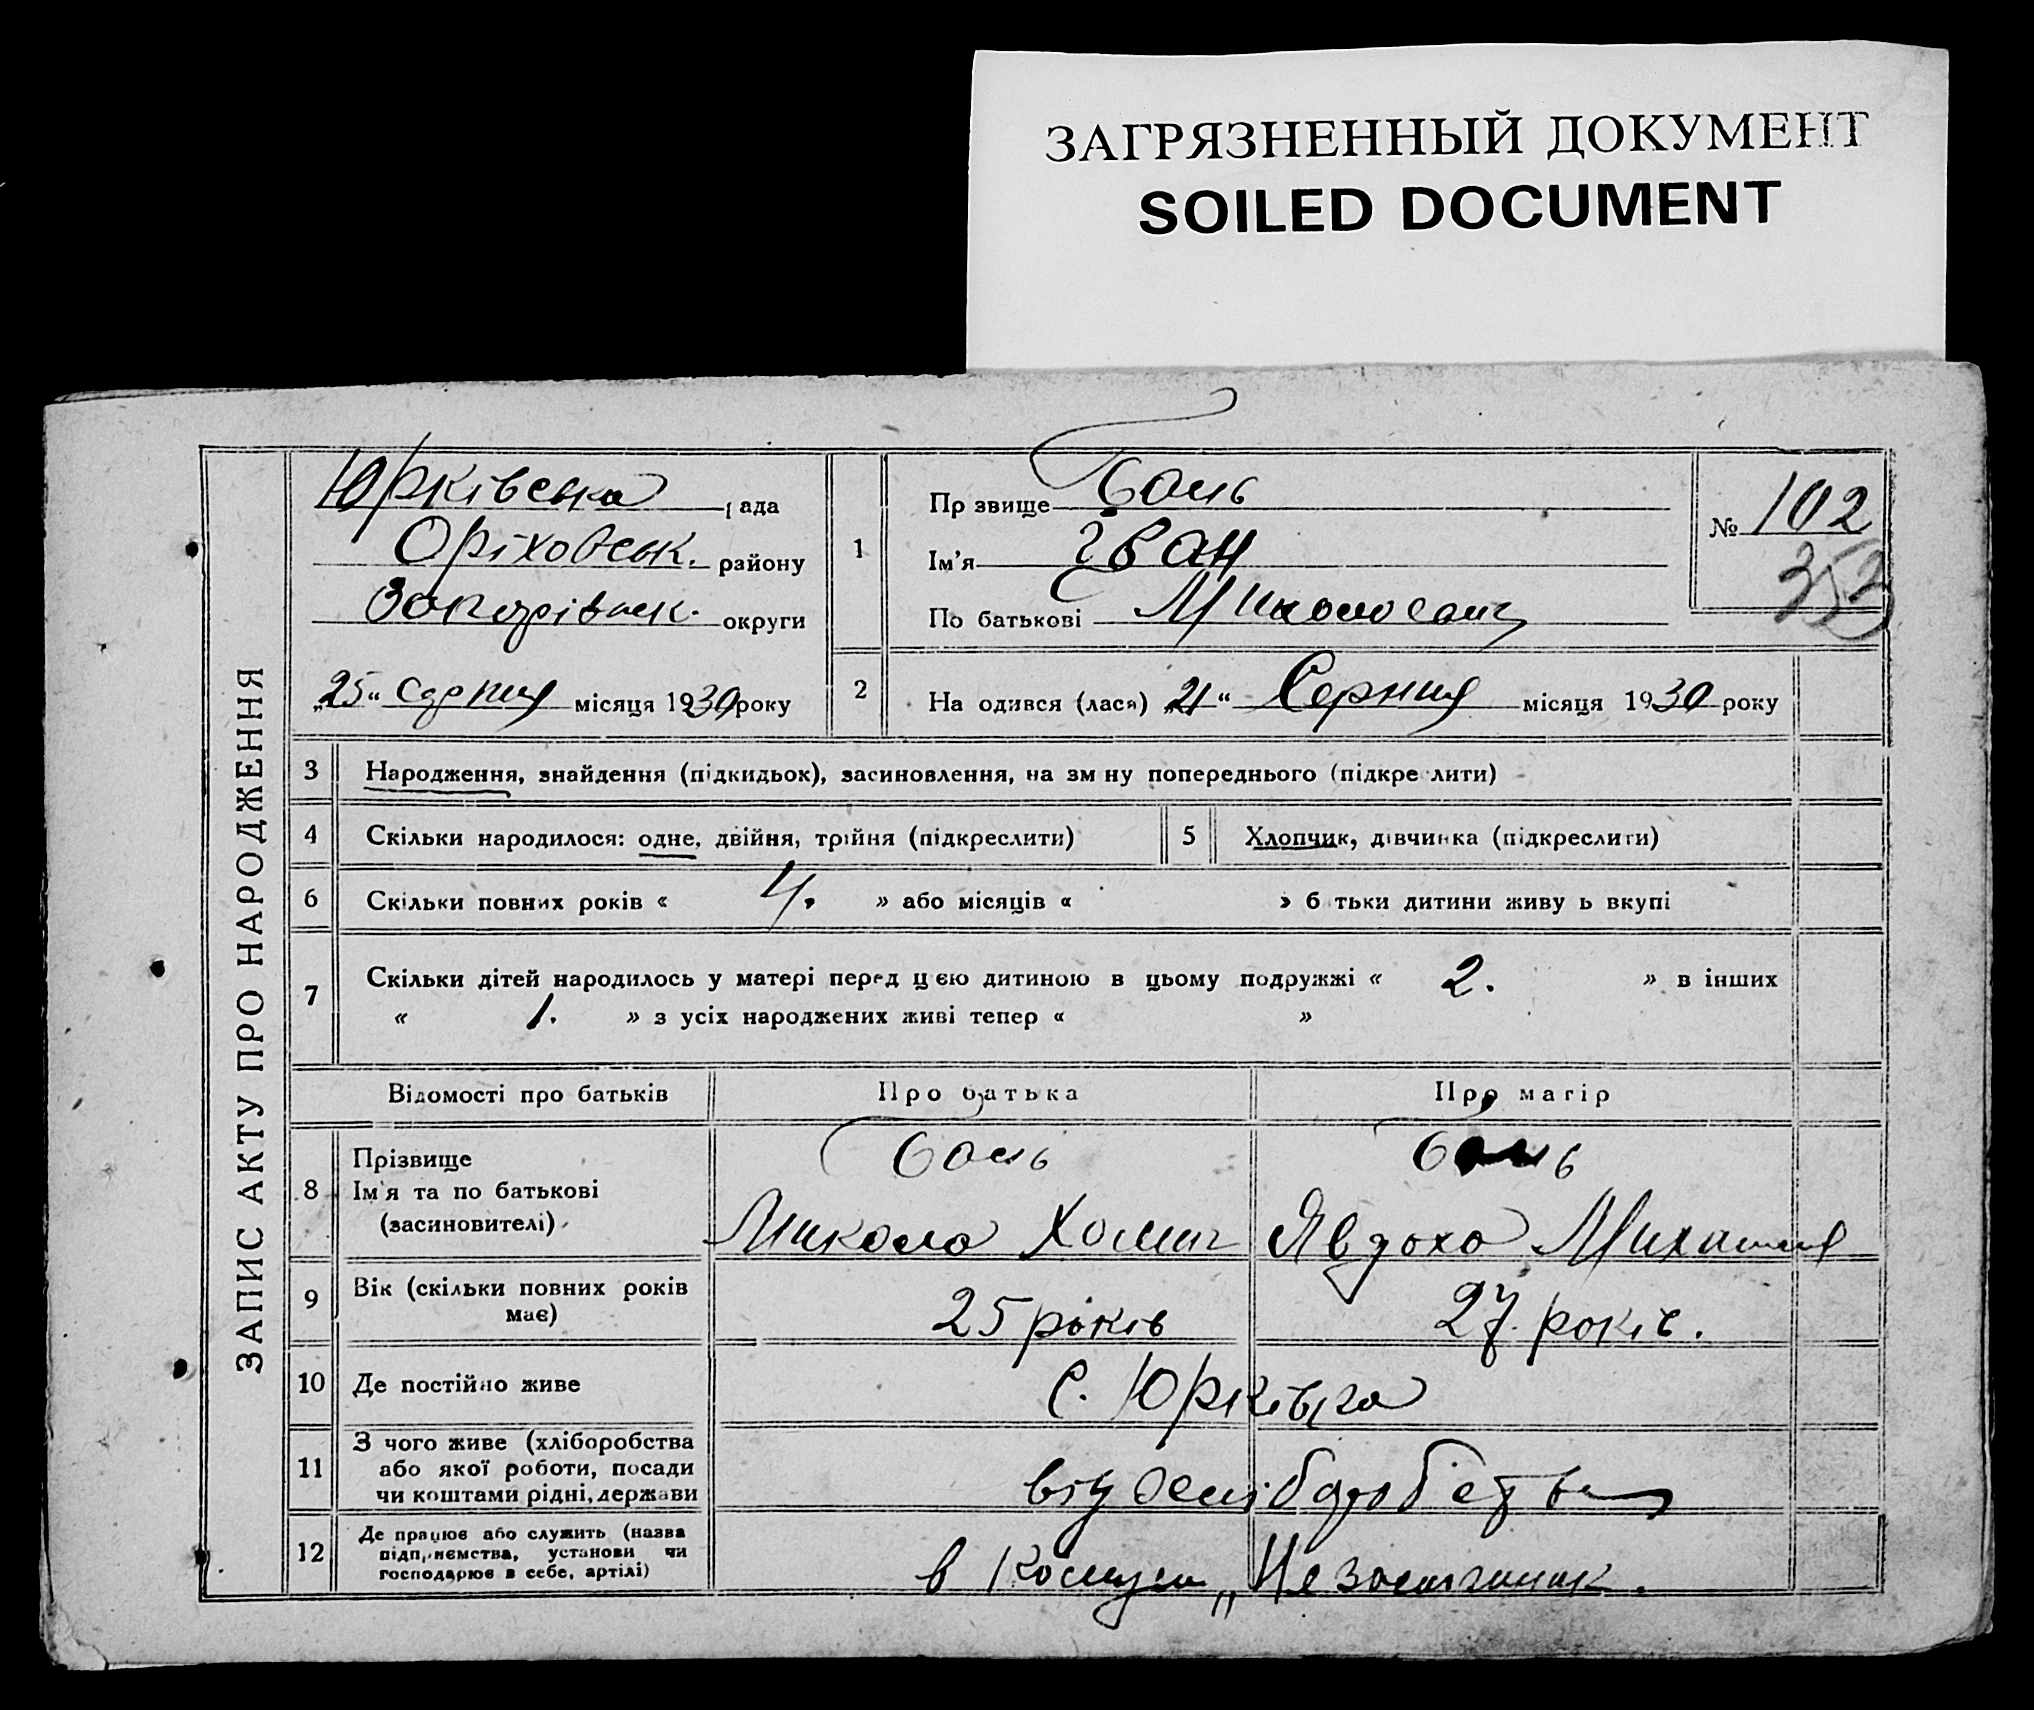 ЗАГРЯЗНЕННЫЙ ДОКУМЕНТ
SOILED DOCUMENT
ЗАПИС АКТУ ПРО НАРОДЖЕННЯ
Юрківська рада
Оріховськ. району
Запорізьк. округи
„25“ серпня місяця 1930 року
1
Прізвище
Ім'я Іван
По батькові Миколаєвич
№ 102
353
2
Народився (лася) „21“ Серпня місяця 1930 року
3 Народження, знайдення (підкидьок), засиновлення, на зміну попереднього (підкреслити)
4 Скільки народилося: одне, двійня, трійня (підкреслити) 5 Хлопчик, дівчинка (підкреслити)
6 Скільки повних років « 4. » або місяців « » батьки дитини живуть вкупі
7 Скільки дітей народилось у матері перед цією дитиною в цьому подружжі « 2. » в інших
« 1. » з усіх народжених живі тепер « »
Відомості про батьків Про батька Про матір
8 Прізвище
Ім'я та по батькові Микола Хомич Явдоха
(засиновителі)
9 Вік (скільки повних років має) 25 років 27 років.
10 Де постійно живе с. Юрківка
11 З чого живе (хліборобства
або якої роботи, посади
чи коштами рідні, держави
12 Де працює або служить (назва
підприємства, установи чи
господарює в себе, артілі)
в Комуні „Незаможник.